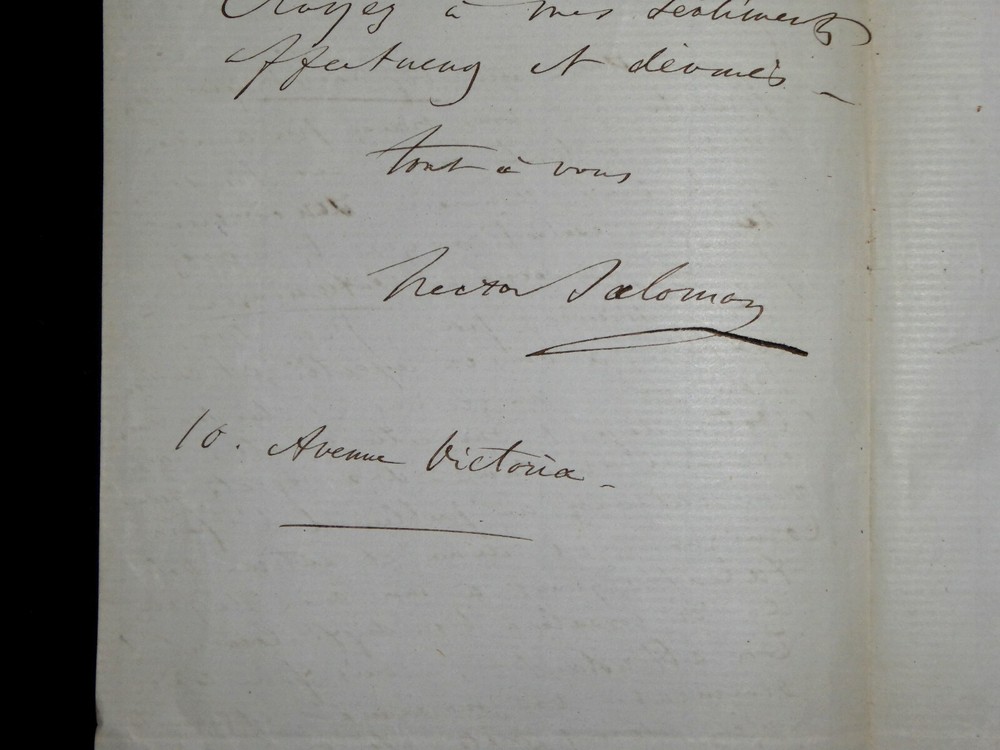 Croyez à mes sentiments
affectueux et dévoués
tout à vous
Hector Salomon
10. Avenue Victoria